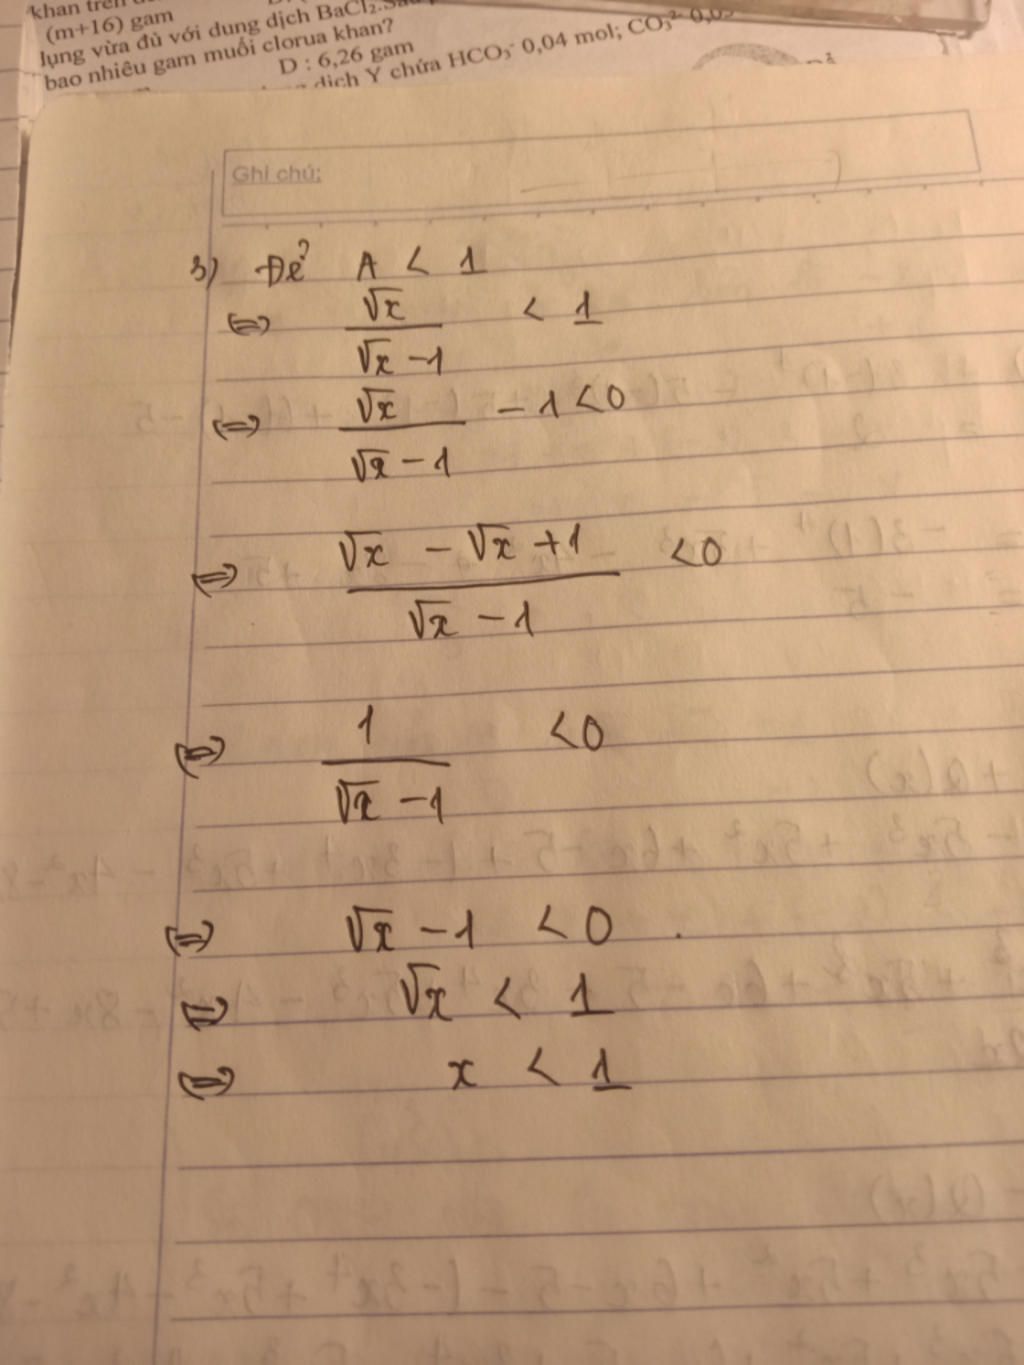 khan trên
(m+16) gam
lụng vừa đủ với dung dịch BaCl₂.
bao nhiêu gam muối clorua khan?
D : 6,26 gam
dịch Y chứa HCO₃⁻ 0,04 mol; CO₃²⁻ 0,03
Ghi chú:
3) Để A < 1
⇔ √x / (√x - 1) < 1
⇔ √x / (√x - 1) - 1 < 0
⇔ (√x - √x + 1) / (√x - 1) < 0
⇔ 1 / (√x - 1) < 0
⇔ √x - 1 < 0
⇔ √x < 1
⇔ x < 1